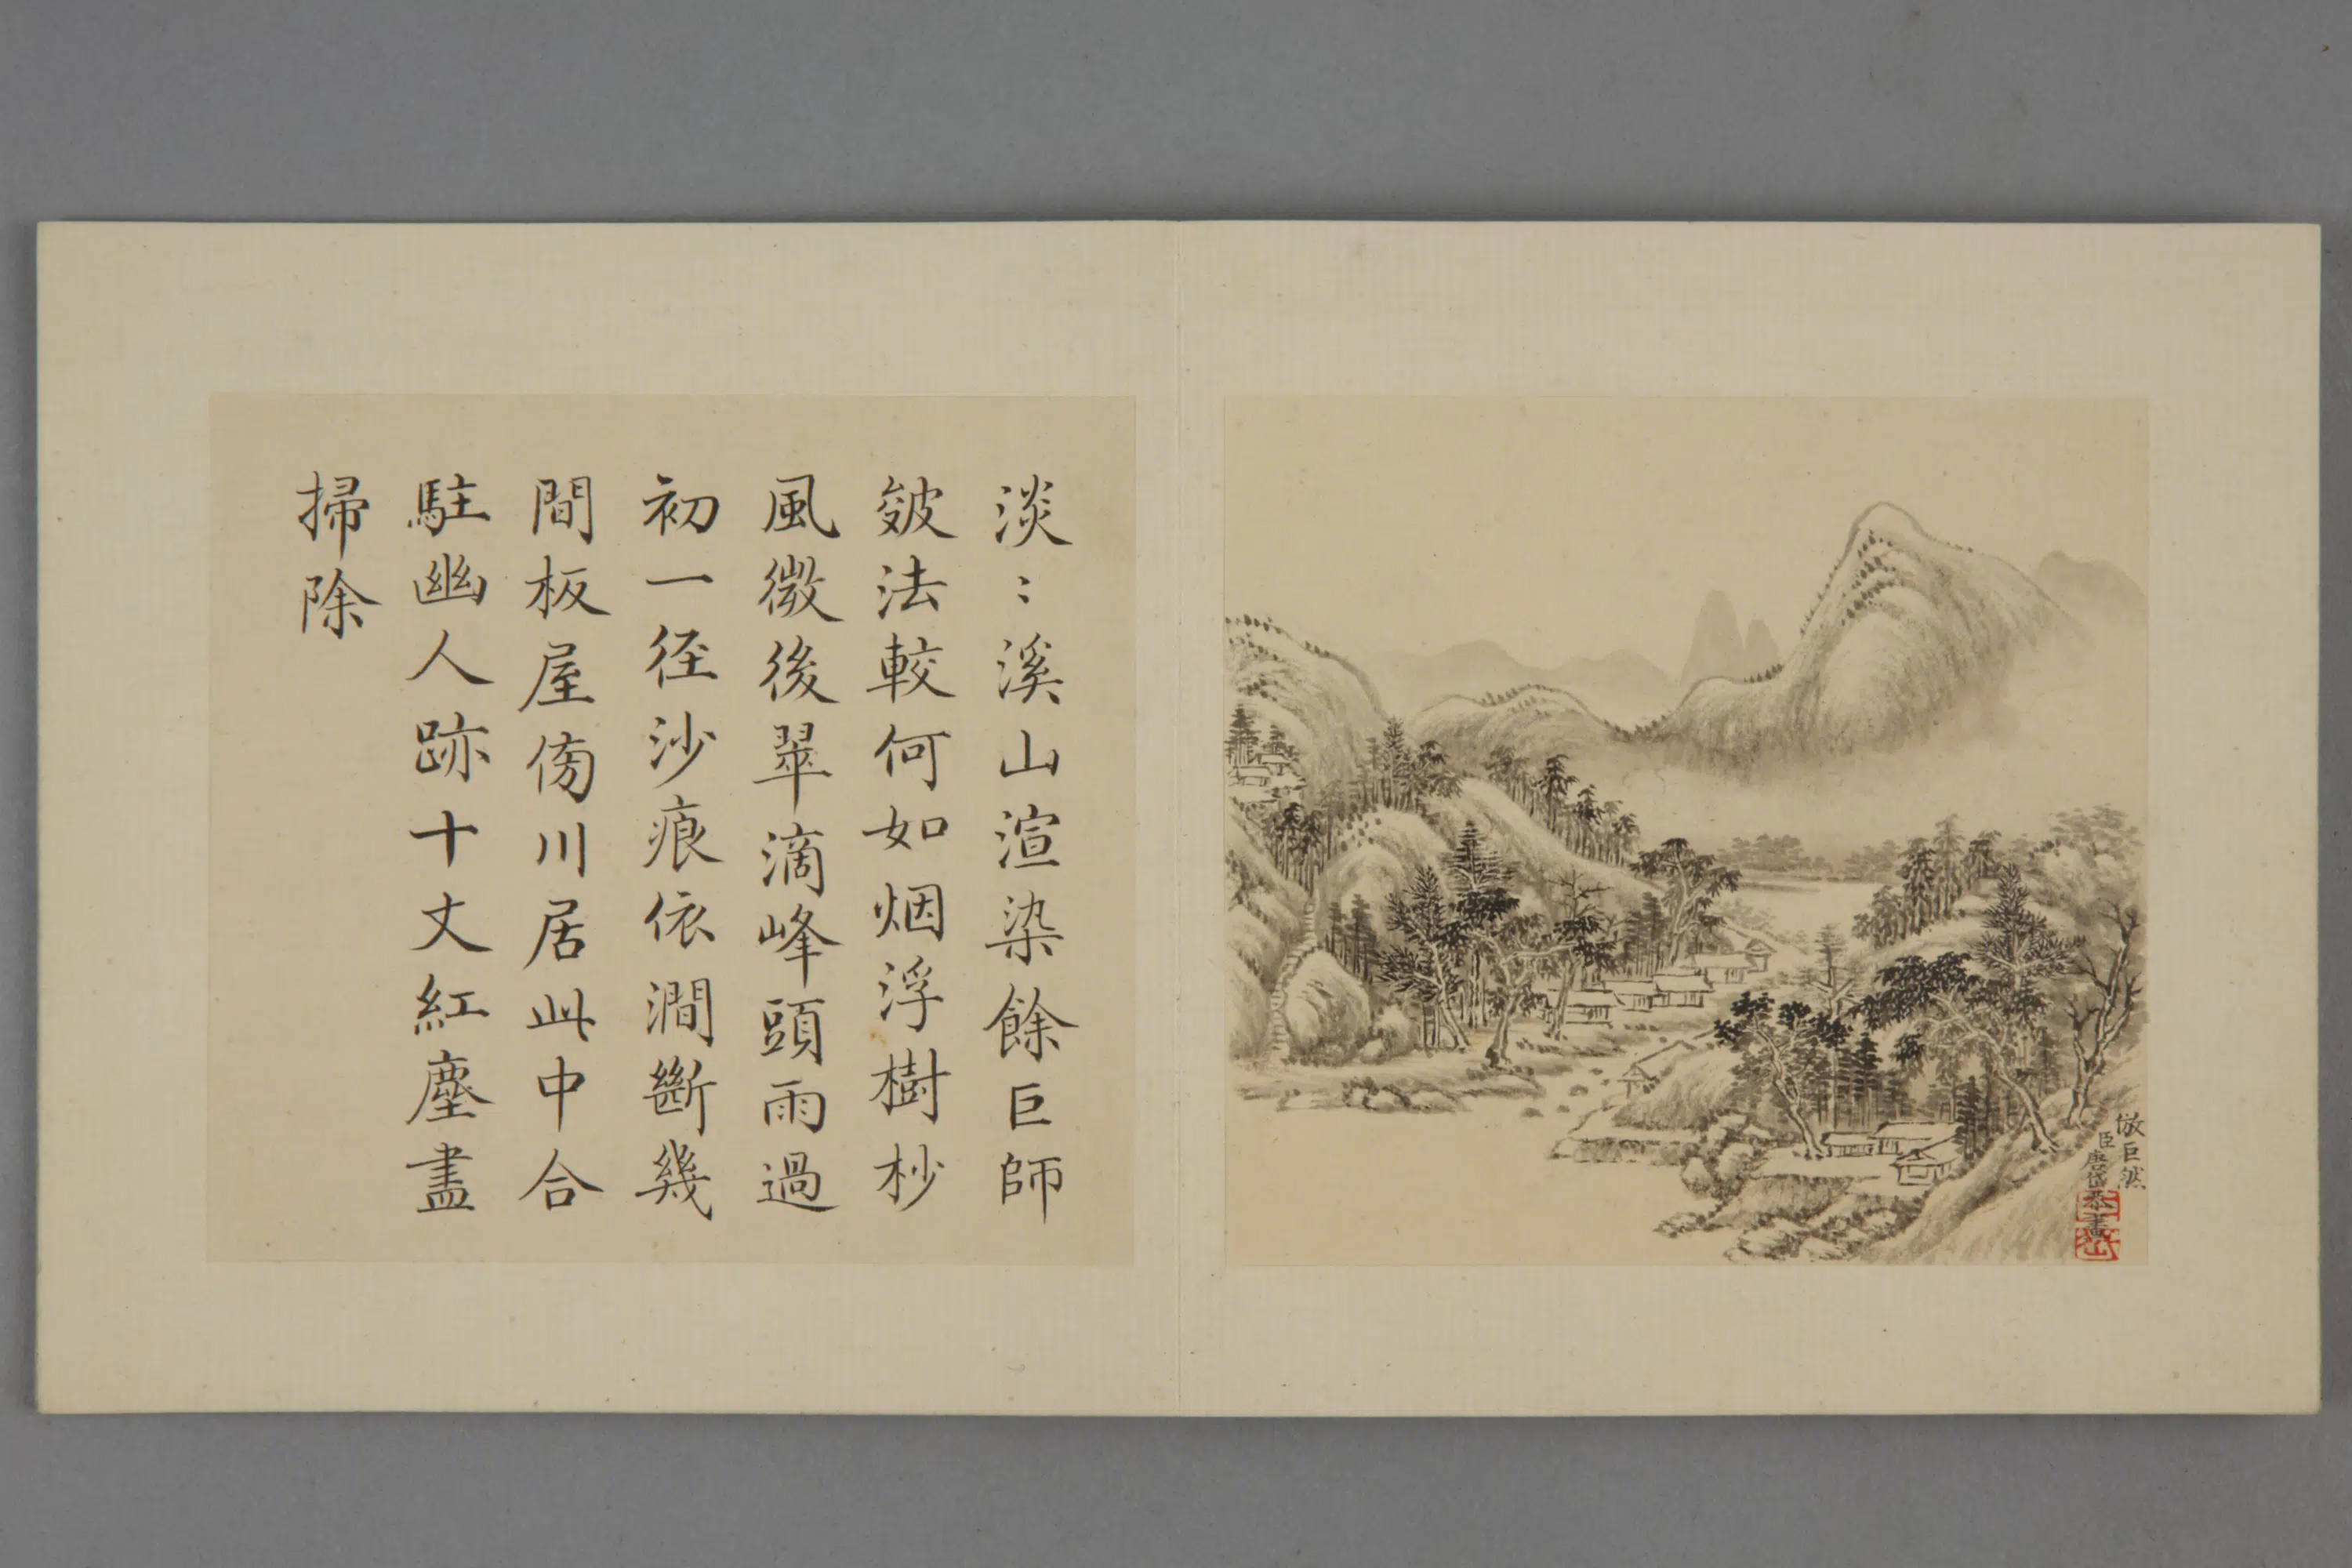 淡〻溪山渲染餘巨師
皴法較何如烟浮樹杪
風微後翠滴峰頭雨過
初一径沙痕依澗斷幾
間板屋傍川居此中合
駐幽人跡十丈紅塵盡
掃除
倣巨然
臣唐岱恭畫